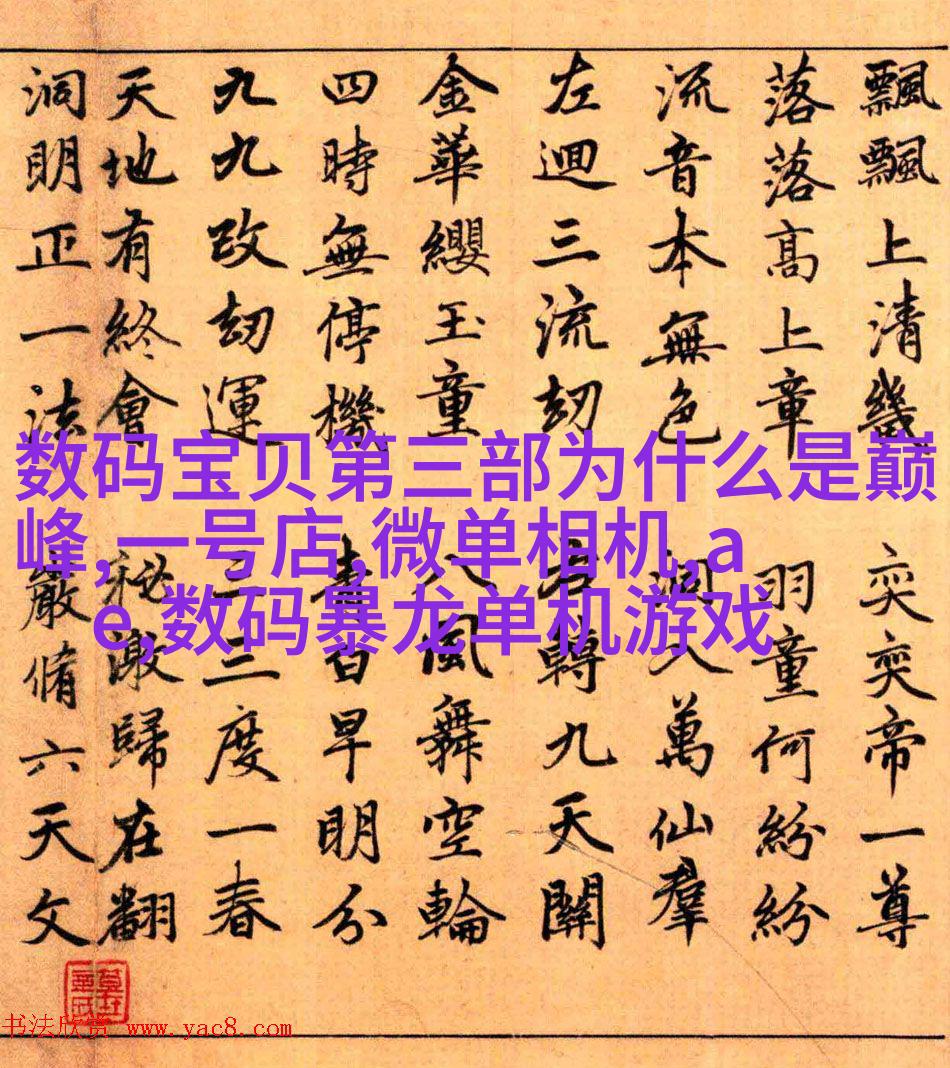 飄飄上清 奕奕帝一尊
落落高上章 羽童何紛紛
流音本無色 洞入萬仙羣
左迴三流刧 右轉九天關
金華纓玉童 八風舞空輪
四時無停機 青白早明分
九九改刧運 三三度一春
天地有終會 秘歸在翻
洞明正一法 嚴脩六天文
数码宝贝第三部为什么是巅
峰,一号店,微单相机,a
e,数码暴龙单机游戏
书法欣赏 www.yac8.com